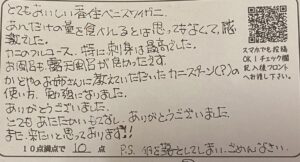 とてもおいしい香住ベニズワイガニ
あんだけの量を食べれるとは思ってなくて、感
激でした。
カニのフルコース、特に刺身は最高でした。
お風呂も露天風呂が良かったです。
かどやのお姉さんに教えていただいたカニスプーン(?)の
使い方、勉強になりました。
ありがとうございました。
とても あたたかいもてなし、ありがとうございました。
また、来たいと思っております!!
10点満点で 10 点 P.S. を落としてしまい、ごめんなさい。
スマホでも投稿
OK!チェック欄
記入後フロント
へお渡し下さい。